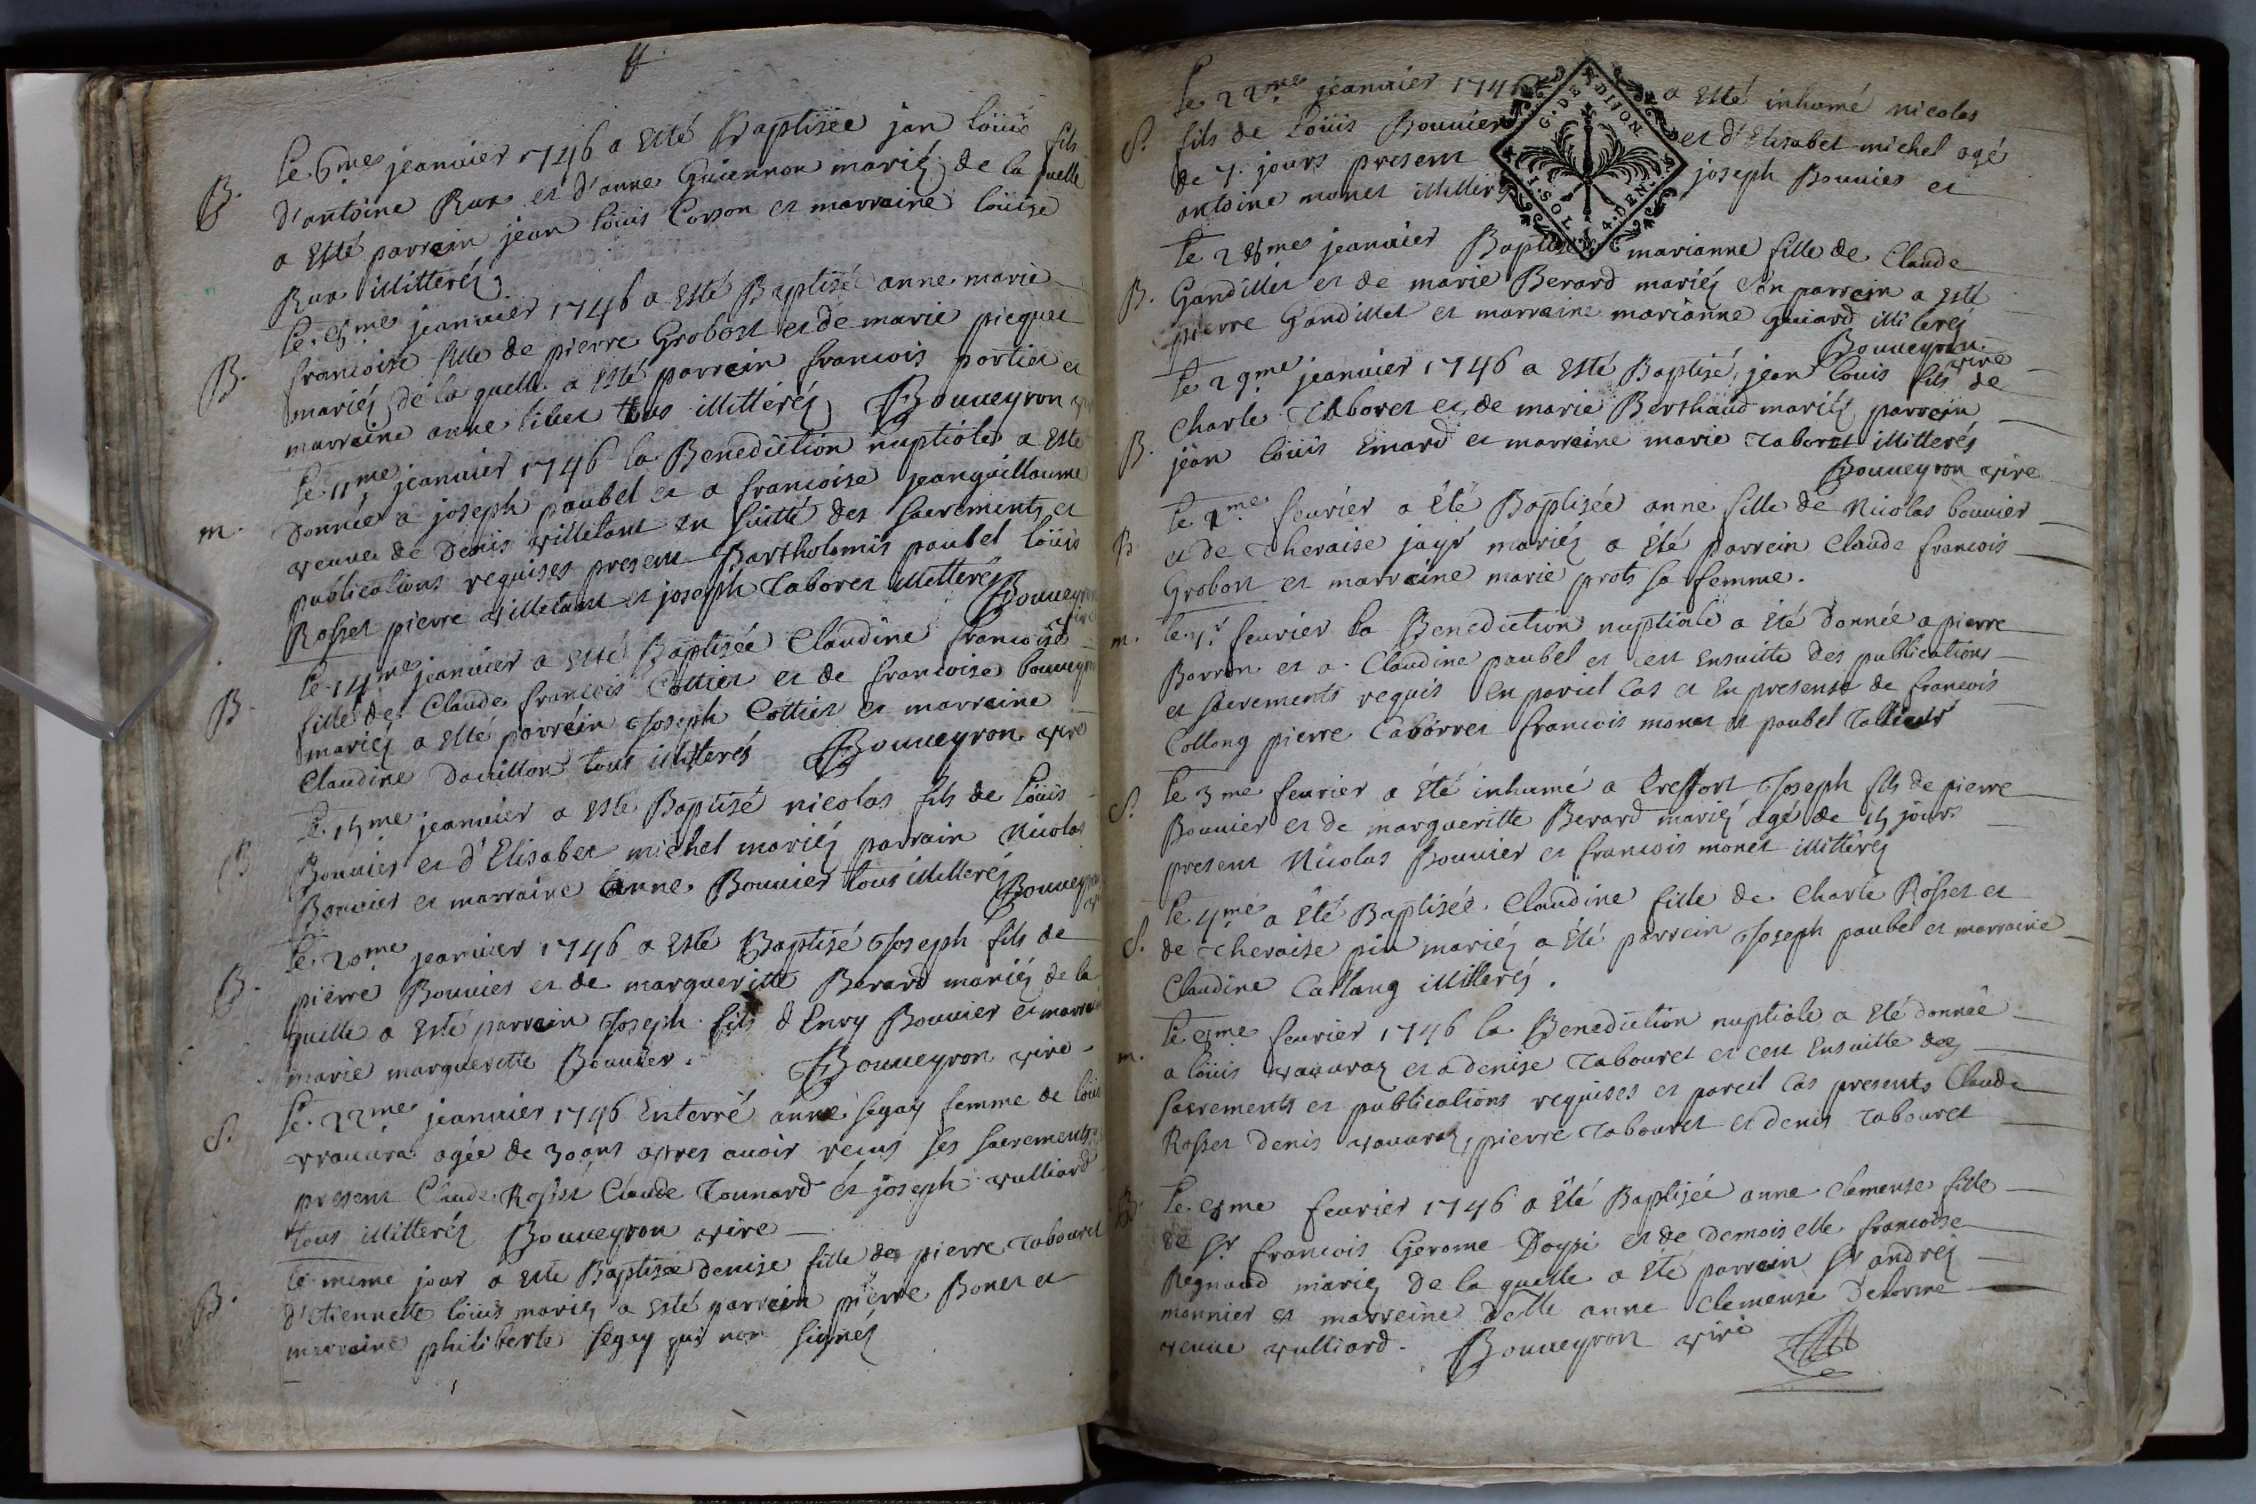 B. Le 6me jeanuier 1746 a Esté Baptisée jan loüis fils
d'antoine Rux et d'anne Guiennon mariéz de la quelle
a Esté parrein jean loüis Corron et marraine loüise
Rux illitteréz
Le 8me jeanuier 1746 a Esté Baptisé anne marie
B. francoise fille de pierre Grobost et de marie picquet
mariéz de la quelle a Esté parrein francois portier et
marraine anne tibet tous illittéréz Bouueyron vire
Le 11me jeanuier 1746 la Benediction nuptiale a Esté
m. Donnée a joseph paubel et a francoise jeanguillaume
veuue de Denis villetant en suitte des sacrements et
publications requises present Bartholomis paubel loüis
Rosset pierre villetant et joseph Taboret illitteréz Bouueyron
vire
Le 14me jeanuier a Esté Baptisée Claudine francoise
B. fille de Claude francois Cottier et de francoise bouueyron
mariéz a Esté parréin Joseph Cottier et marreine
Claudine Douillon tous illitteréz Bouueyron vire
Le 15me jeanuier a Esté Baptisé nicolas fils de loüis
B Bouuier et d'Elisabet michel mariéz parrain Nicolas
Bouuier et marraine anne Bouuier tous illitteréz Bouueyron
Le 20me jeanuier 1746 a Esté Baptisé Joseph fils de
B. pierre Bouuier et de margueritte Berard mariéz de la
quelle a Esté parrein Joseph fils d'Enry Bouuier et marraine
marie margueritte Bouuier. Bouueyron vire
Le 22me jeanuier 1746 Enterré anne segay femme de loüis
S. vrauura agée de 30 ans apres auoir recus ses sacrements
present Claude Rosset Claude Tounard et joseph vulliard
tous illitteréz Bouueyron vire
Le meme jour a Esté Baptisée denise fille de pierre Tabouret
B. d'Etiennette loüis mariéz a Esté parrein pierre Bonet et
marraine philiberte segay qui non signéz
Le 22me jeanuier 1746 a Esté inhumé nicolas
S. fils de loüis Bouuier et d'Elisabet michel agé
de 7. jours present joseph Bouuier et
antoine monet illitteréz
G. DE DIJON
1. SOL 4. DEN.
Le 28me jeanuier Baptisée marianne fille de Claude
B. Gandillet et de marie Berard mariéz son parrein a Esté
pierre Gandillet et marraine marianne guiard illiteréz
Bouueyron
vire
Le 29me jeanuier 1746 a Esté Baptisé jean louis fils de
Charle Taboret et de marie Berthaud mariéz parrein
B. jean loüis Emard et marreine marie Taboret illitteréz
Bouueyron vire
Le 2me feurier a Eté Baptisée anne fille de Nicolas bouuier
B et de Theraise jayr mariéz a Eté parrein Claude francois
Grobost et marraine marie prots sa femme.
m. Le 1r feurier la Benediction nuptiale a été Donnée a pierre
Borron et a Claudine paubel et cest Ensuitte des publications
et sacrements requis En pariel cas et En presense de francois
Collong pierre Caborret francois monet et paubel Tallieur
Le 3me feurier a Eté inhumé a treffort Joseph fils de pierre
S. Bouuier et de margueritte Berard mariéz agé de 15 jours
present Nicolas Bouuier et francois monet illittéréz
Le 4me a Eté Baptisée Claudine fille de Charle Rosset et
S. de Theraise pin mariéz a Eté parrein Joseph paubel et marraine
Claudine Catlang illitteréz.
Le 8me feurier 1746 la Benediction nuptiale a Eté donnée
m. a loüis vauuraz et a denise Tabouret et cest Ensuitte des
sacrements et publications requises et pareil cas presents Claude
Rosset Denis vauuraz, pierre Tabouret et denis Tabouret
B. Le 8me feurier 1746 a Eté Baptisée anne Clemense fille
de Sr francois Gerome Doypi et de demoiselle francoise
Regnaud mariéz de la quelle a Eté parrein Sr andréz
monnier et marreine delle anne Clemense Delorme
veuue vulliard. Bouueyron viré